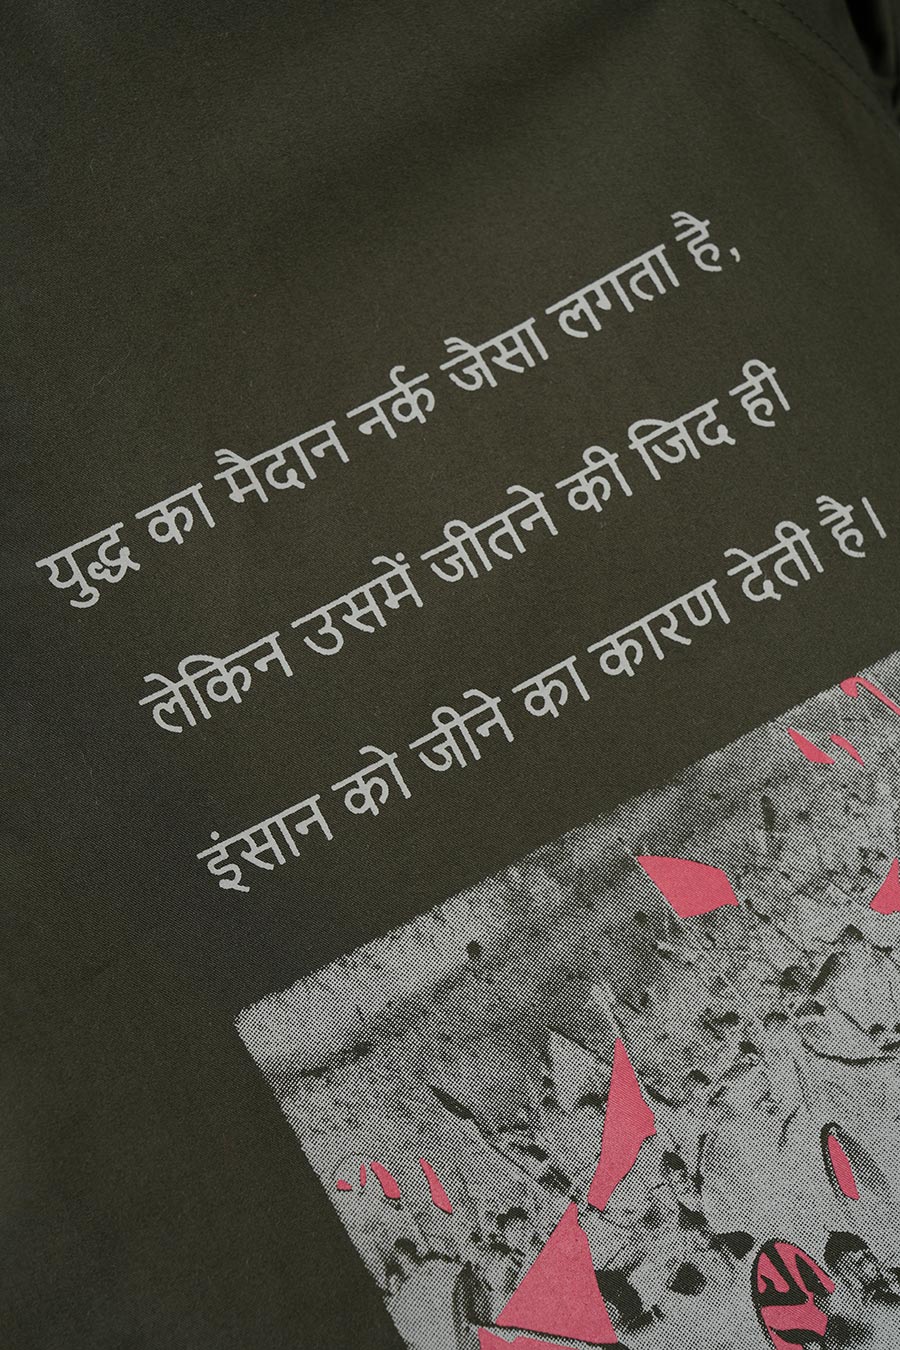 युद्ध का मैदान नर्क जैसा लगता है,
लेकिन उसमें जीतने की जिद ही
इंसान को जीने का कारण देती है।